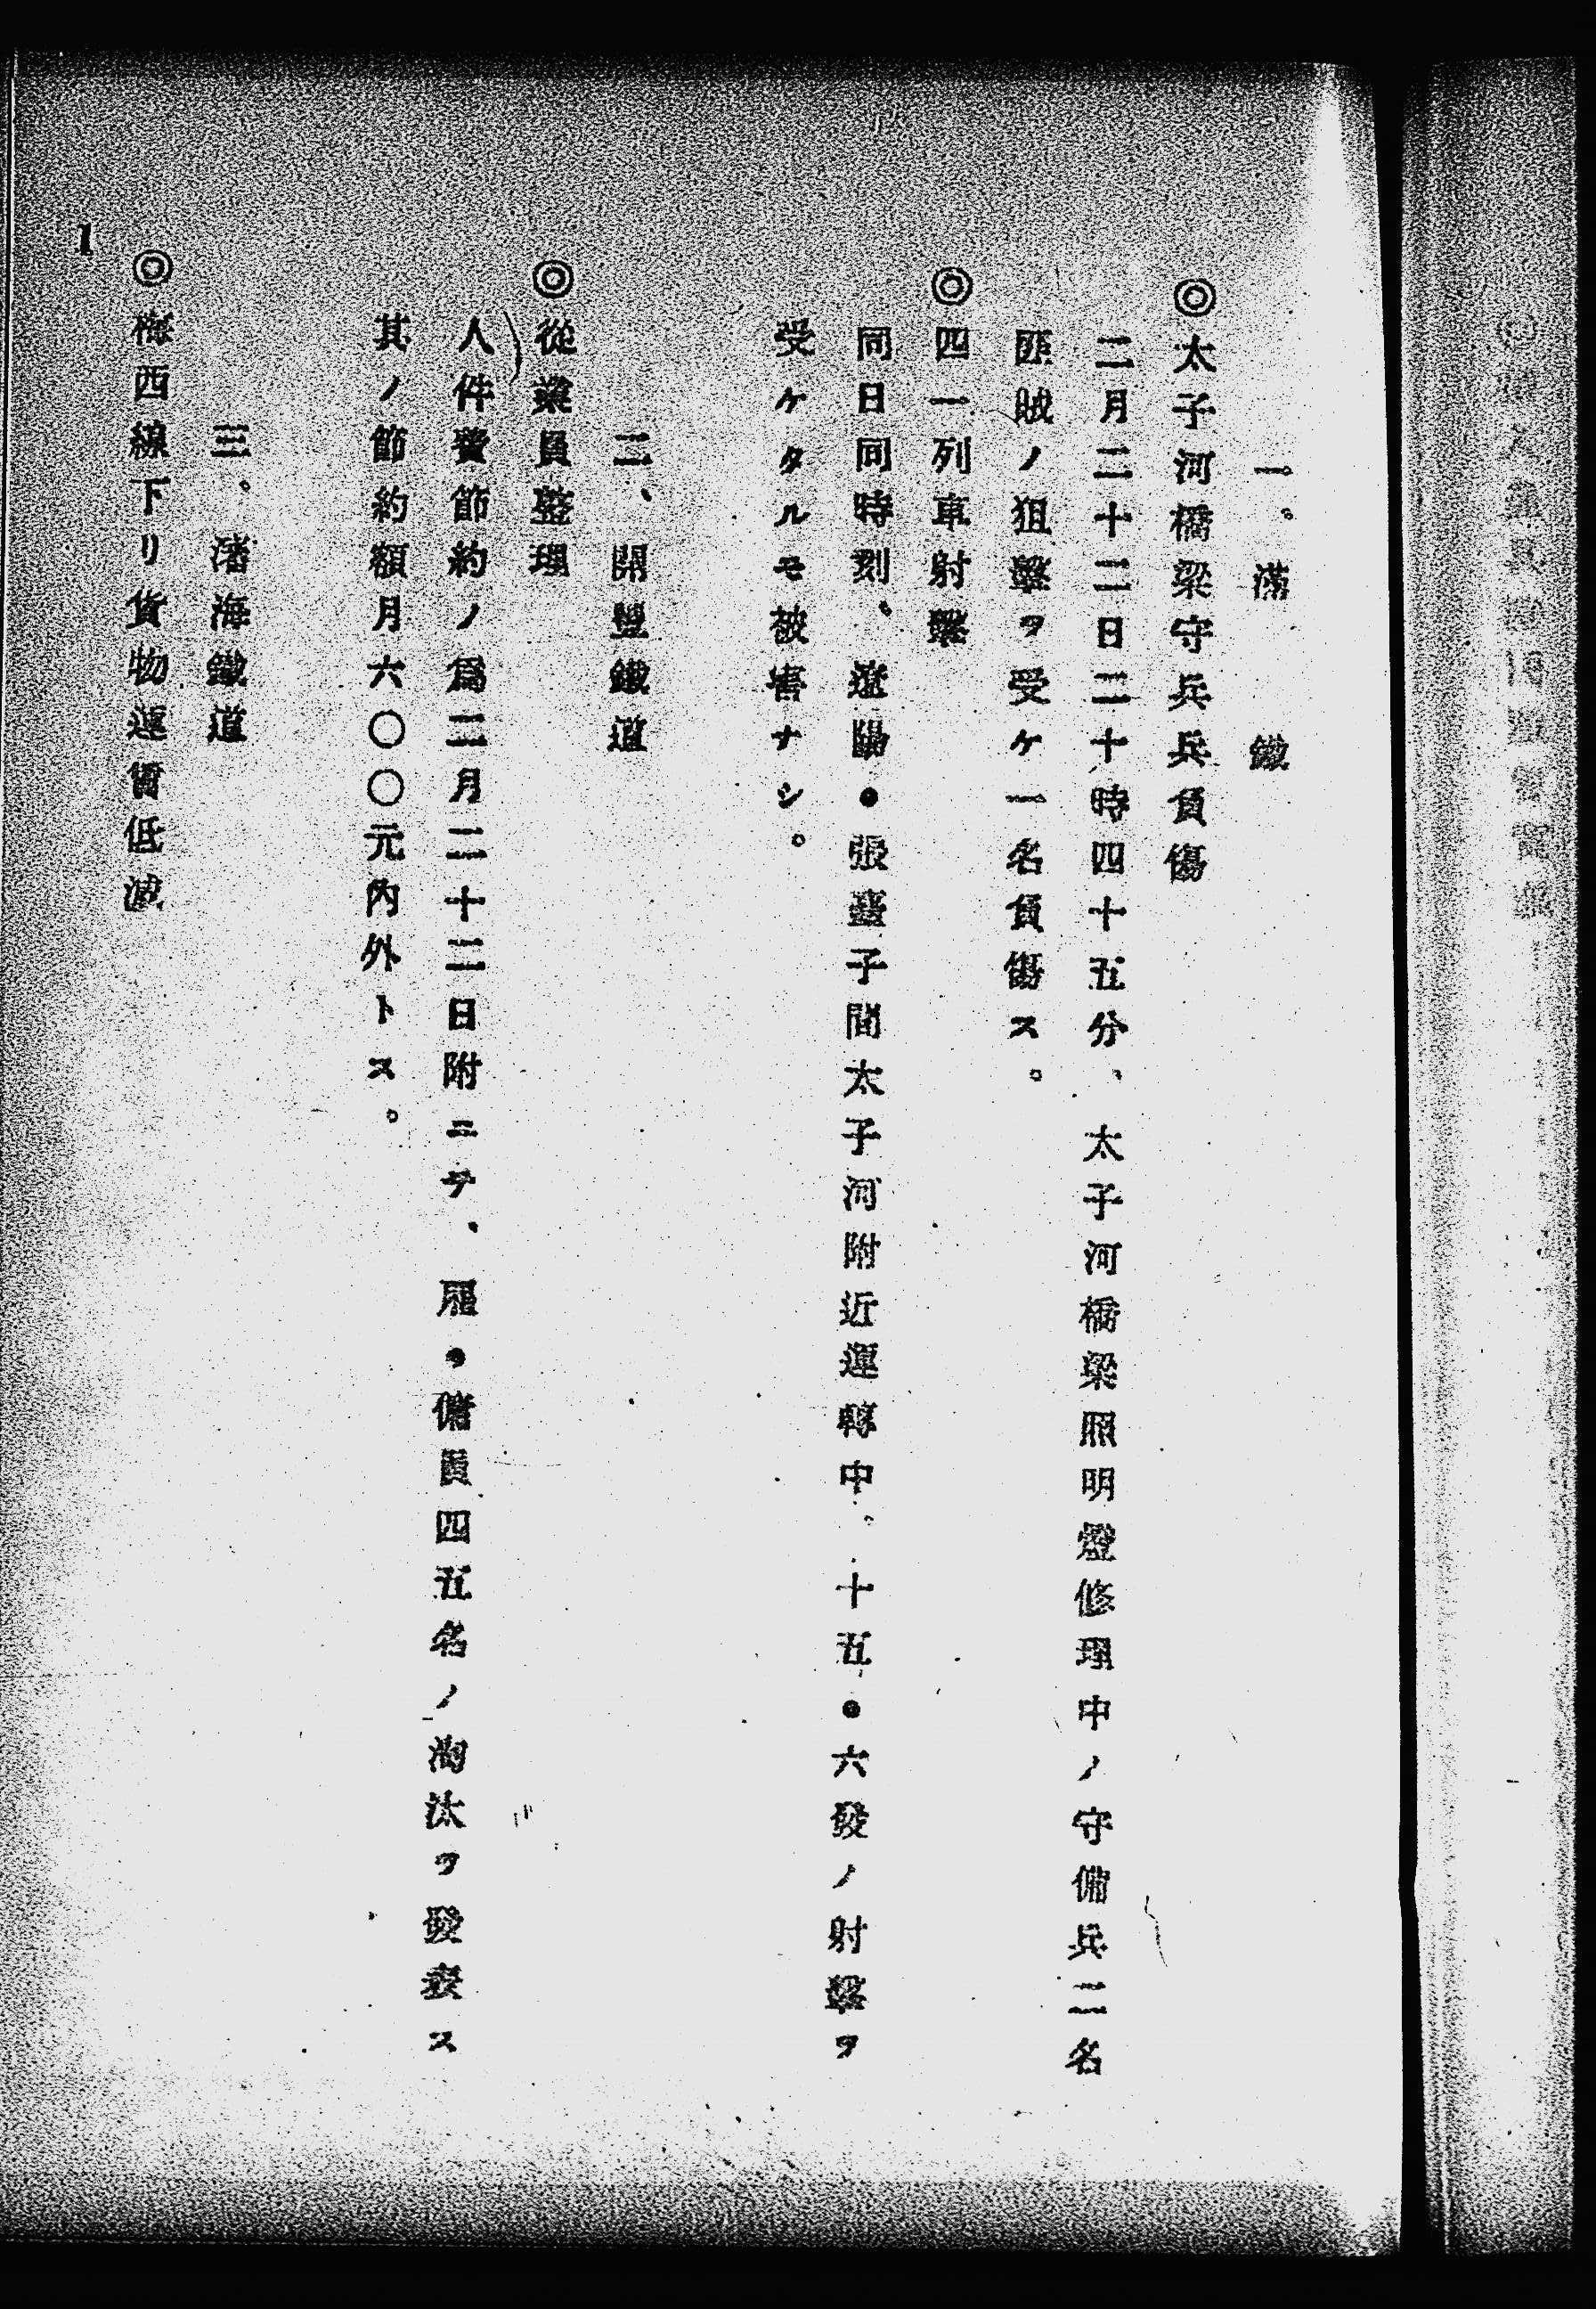 一。滿鐵
◎太子河橋梁守兵兵負傷
二月二十二日二十時四十五分、太子河橋梁照明燈修理中ノ守備兵二名
匪賊ノ狙擊ヲ受ケ一名負傷ス。
◎四一列車射擊
同日同時刻、遼陽●張臺子間太子河附近運轉中、十五●六發ノ射擊ヲ
受ケタルモ被害ナシ。
二、開豐鐵道
◎從業員整理
人件費節約ノ爲二月二十二日附ニテ、雇●傭員四五名ノ淘汰ヲ發表ス
其ノ節約額月六〇〇元內外トス。
三、瀋海鐵道
◎梅西線下リ貨物運賃低減
1